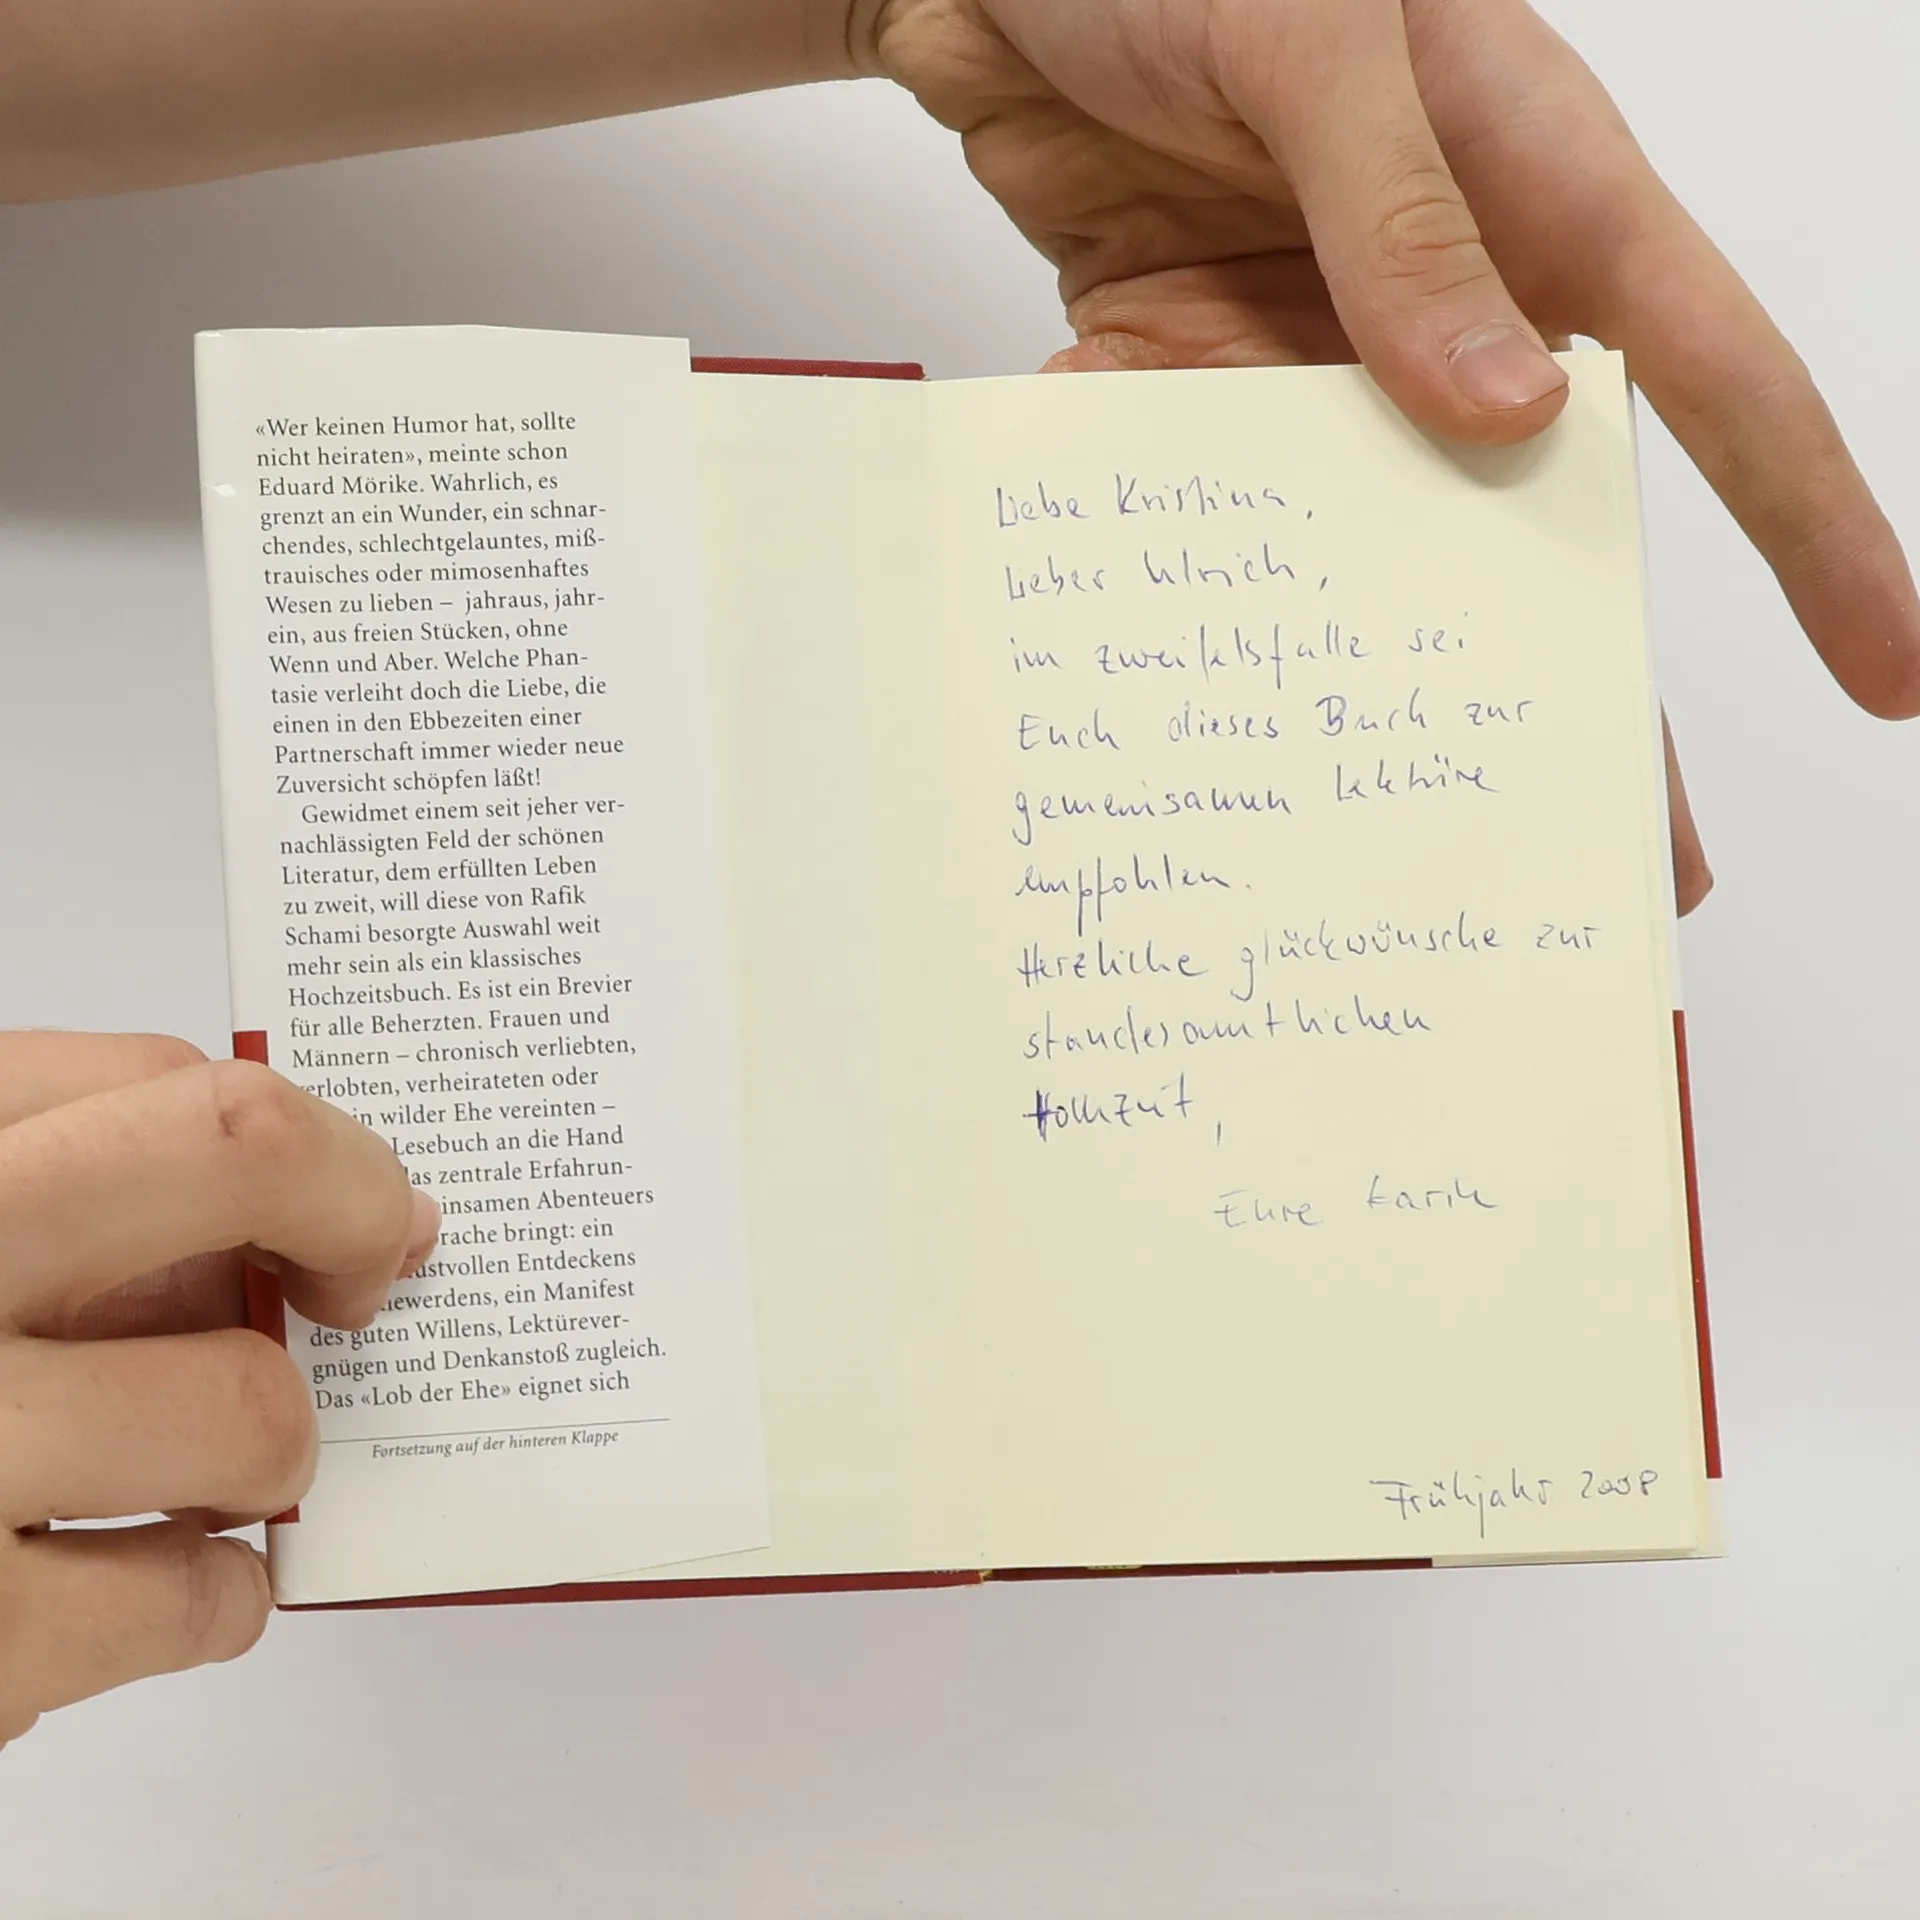 «Wer keinen Humor hat, sollte
nicht heiraten», meinte schon
Eduard Mörike. Wahrlich, es
grenzt an ein Wunder, ein schnar-
chendes, schlechtgelauntes, miß-
trauisches oder mimosenhaftes
Wesen zu lieben – jahraus, jahr-
ein, aus freien Stücken, ohne
Wenn und Aber. Welche Phan-
tasie verleiht doch die Liebe, die
einen in den Ebbezeiten einer
Partnerschaft immer wieder neue
Zuversicht schöpfen läßt!
Gewidmet einem seit jeher ver-
nachlässigten Feld der schönen
Literatur, dem erfüllten Leben
zu zweit, will diese von Rafik
Schami besorgte Auswahl weit
mehr sein als ein klassisches
Hochzeitsbuch. Es ist ein Brevier
für alle Beherzten. Frauen und
Männern – chronisch verliebten,
erlobten, verheirateten oder
in wilder Ehe vereinten –
Lesebuch an die Hand
as zentrale Erfahrun-
insamen Abenteuers
rache bringt: ein
ustvollen Entdeckens
ewerdens, ein Manifest
des guten Willens, Lektürever-
gnügen und Denkanstoß zugleich.
Das «Lob der Ehe» eignet sich
Fortsetzung auf der hinteren Klappe
Liebe Kristina,
Lieber Ulrich,
im zweifelsfalle sei
Euch dieses Buch zur
gemeinsamen Lektüre
empfohlen.
Herzliche glückwünsche zur
standesamtlichen
Hochzeit,
Eure
Frühjahr 2008